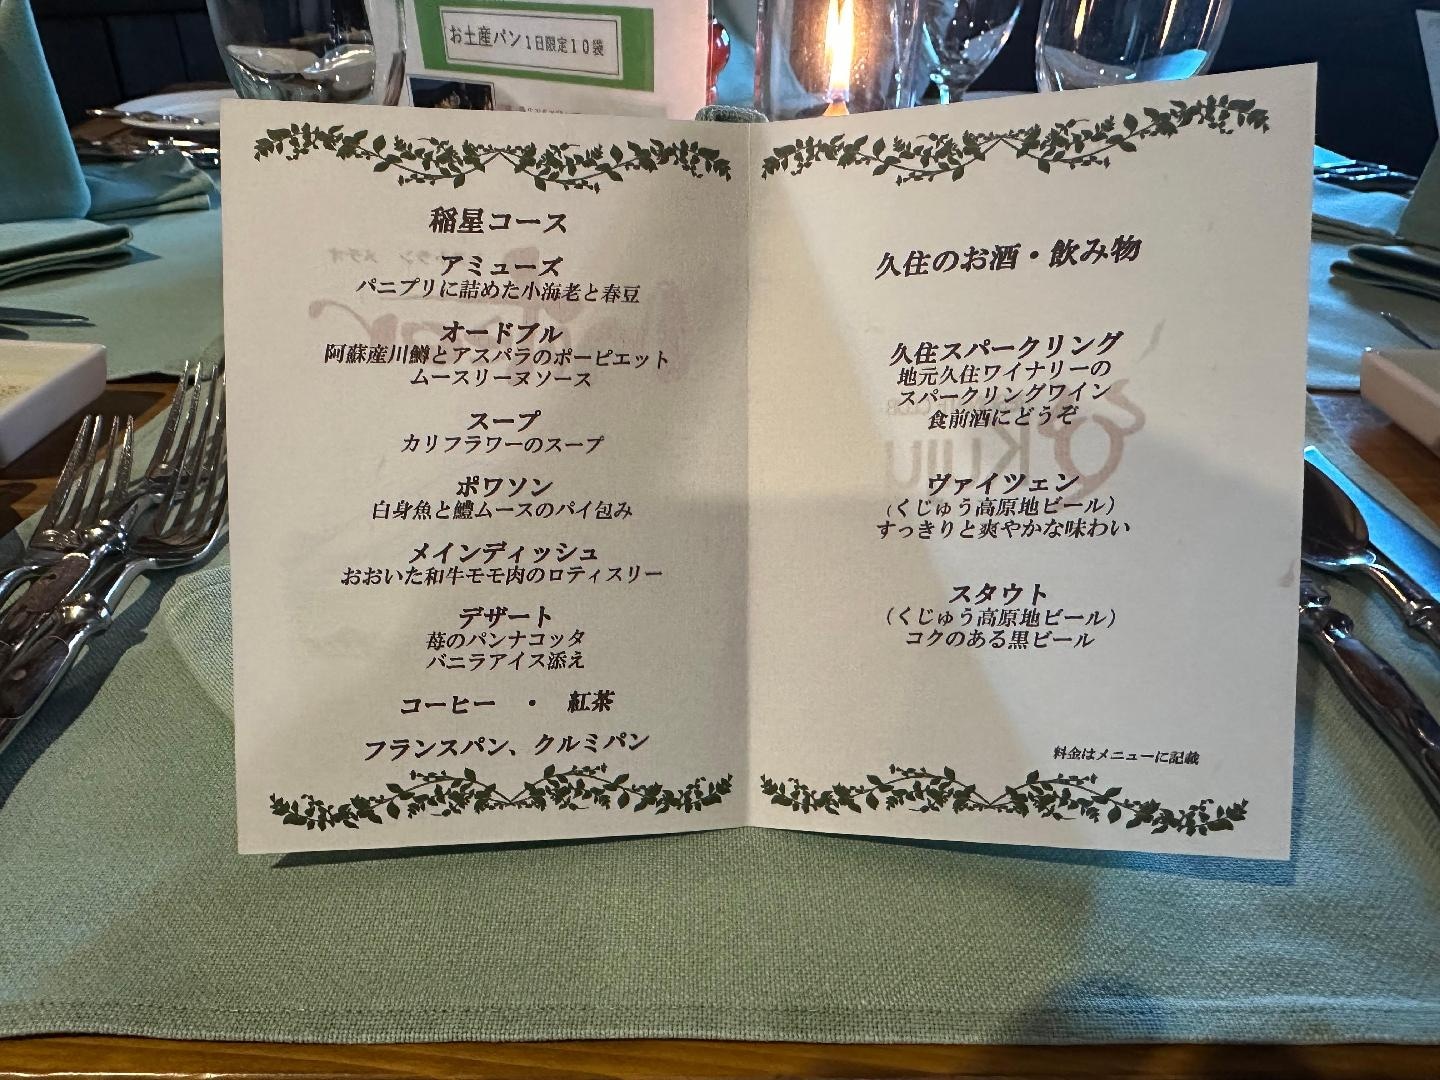 お土産パン1日限定10袋
稲星コース
アミューズ
パニプリに詰めた小海老と春豆
オードブル
阿蘇産川鱒とアスパラのポーピエット
ムースリーヌソース
スープ
カリフラワーのスープ
ポワソン
白身魚と鱧ムースのパイ包み
メインディッシュ
おおいた和牛モモ肉のロティスリー
デザート
苺のパンナコッタ
バニラアイス添え
コーヒー ・ 紅茶
フランスパン、クルミパン
久住のお酒・飲み物
久住スパークリング
地元久住ワイナリーの
スパークリングワイン
食前酒にどうぞ
ヴァイツェン
(くじゅう高原地ビール)
すっきりと爽やかな味わい
スタウト
(くじゅう高原地ビール)
コクのある黒ビール
料金はメニューに記載